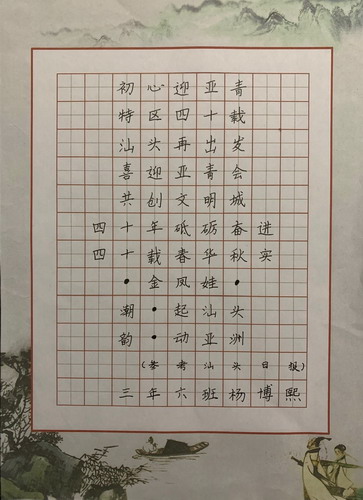 初心迎亚青
特区四十载
汕头再出发
喜迎亚青会
共创文明城
四十年砥砺奋进
四十载春华秋实
•金凤娃•
潮•起汕头
韵•动亚洲
(参考汕头日报)
三年六班杨博熙